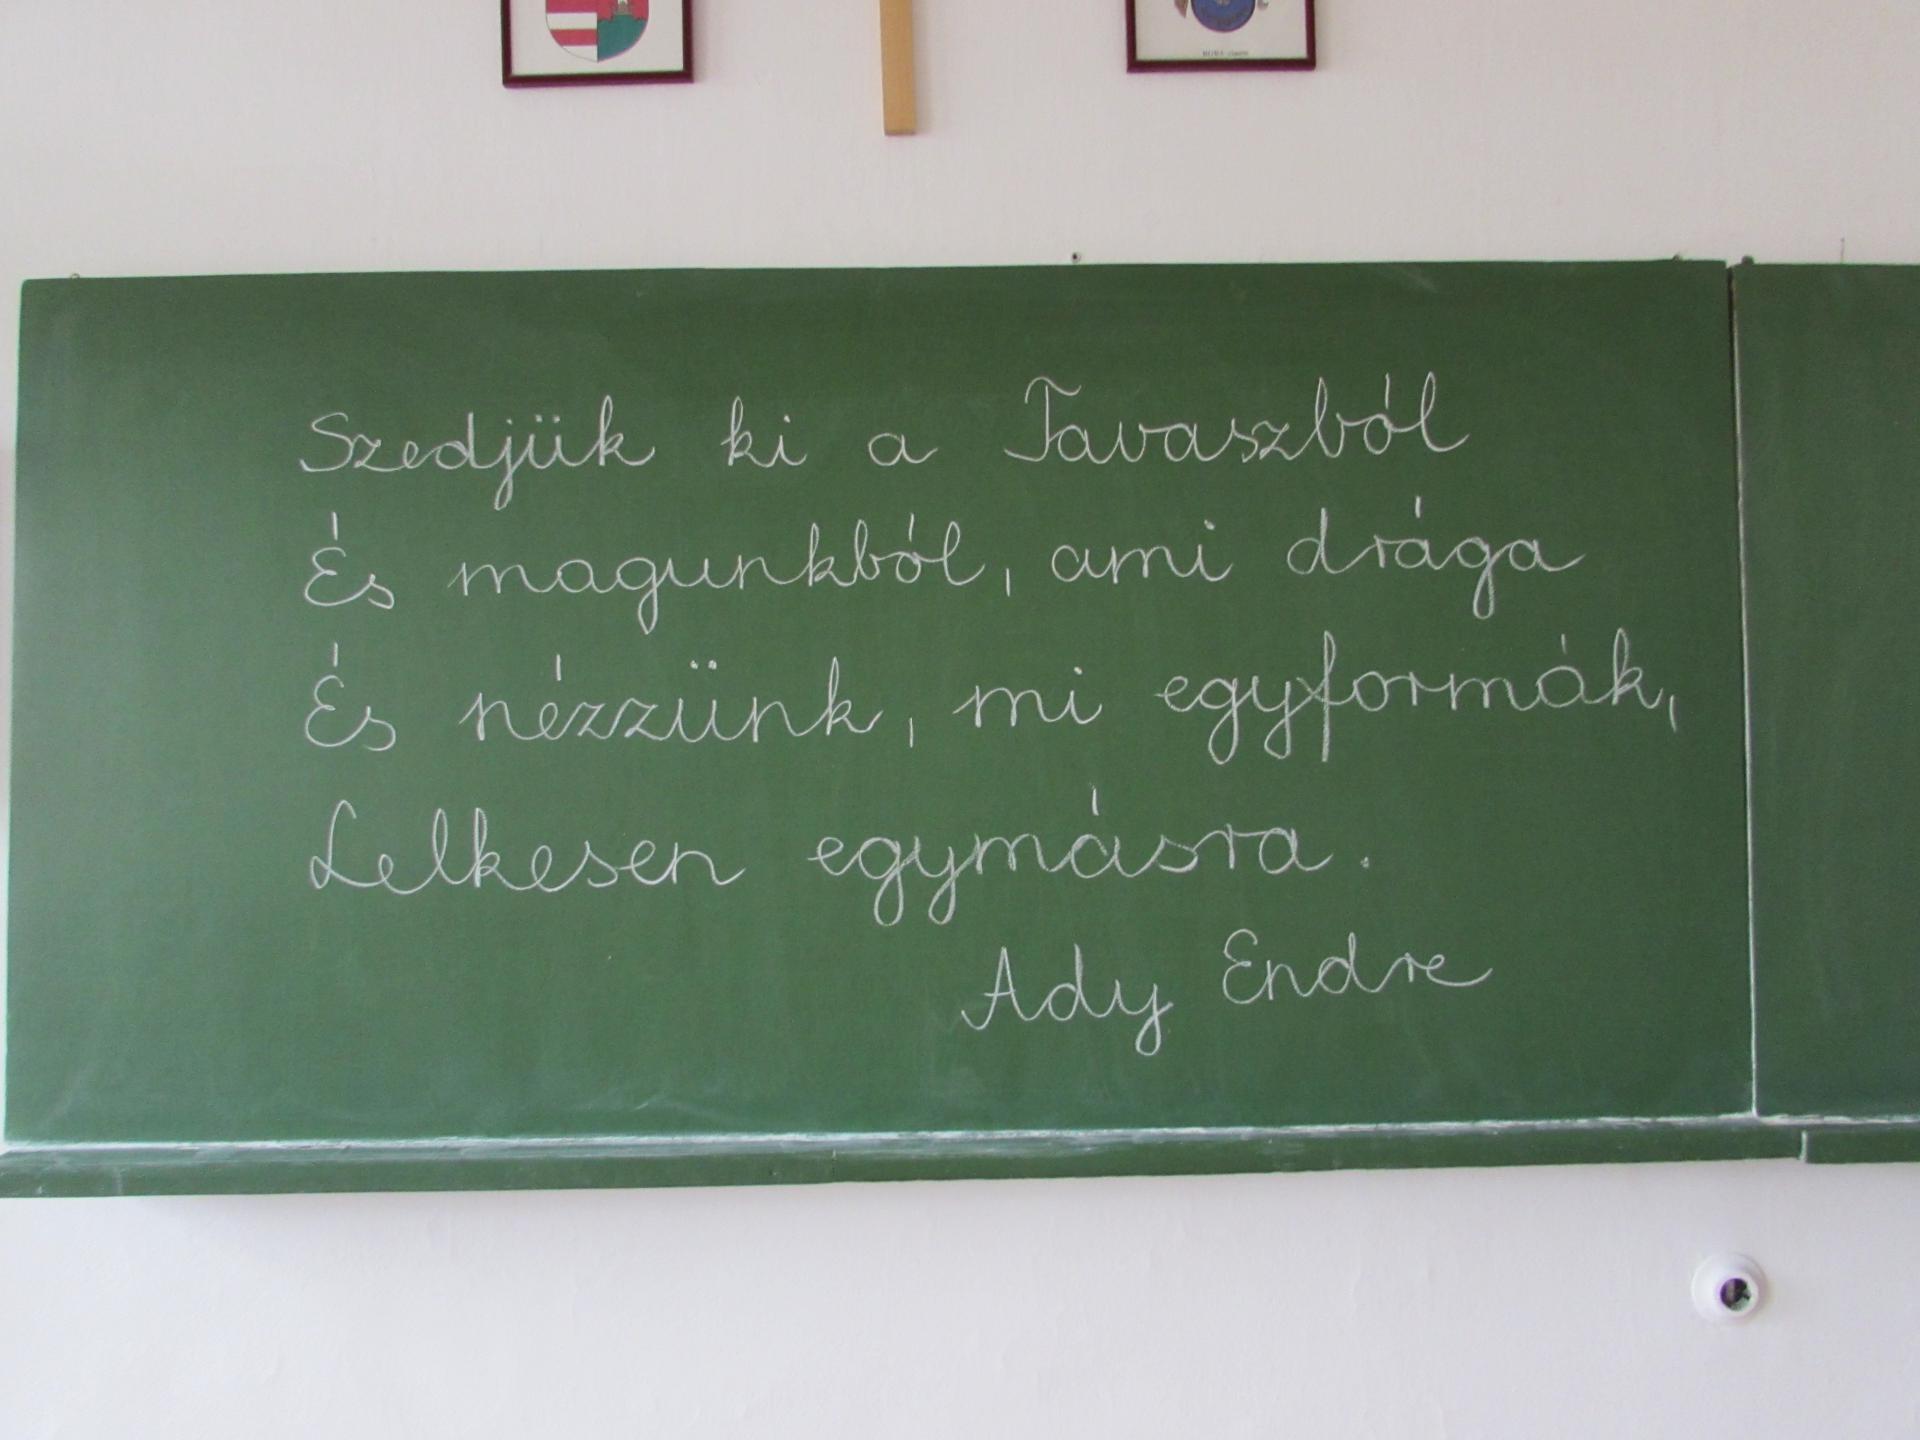 Szedjük ki a Tavaszból
És magunkból, ami drága
És nézzünk, mi egyformák,
Lelkesen egymásra.
Ady Endre